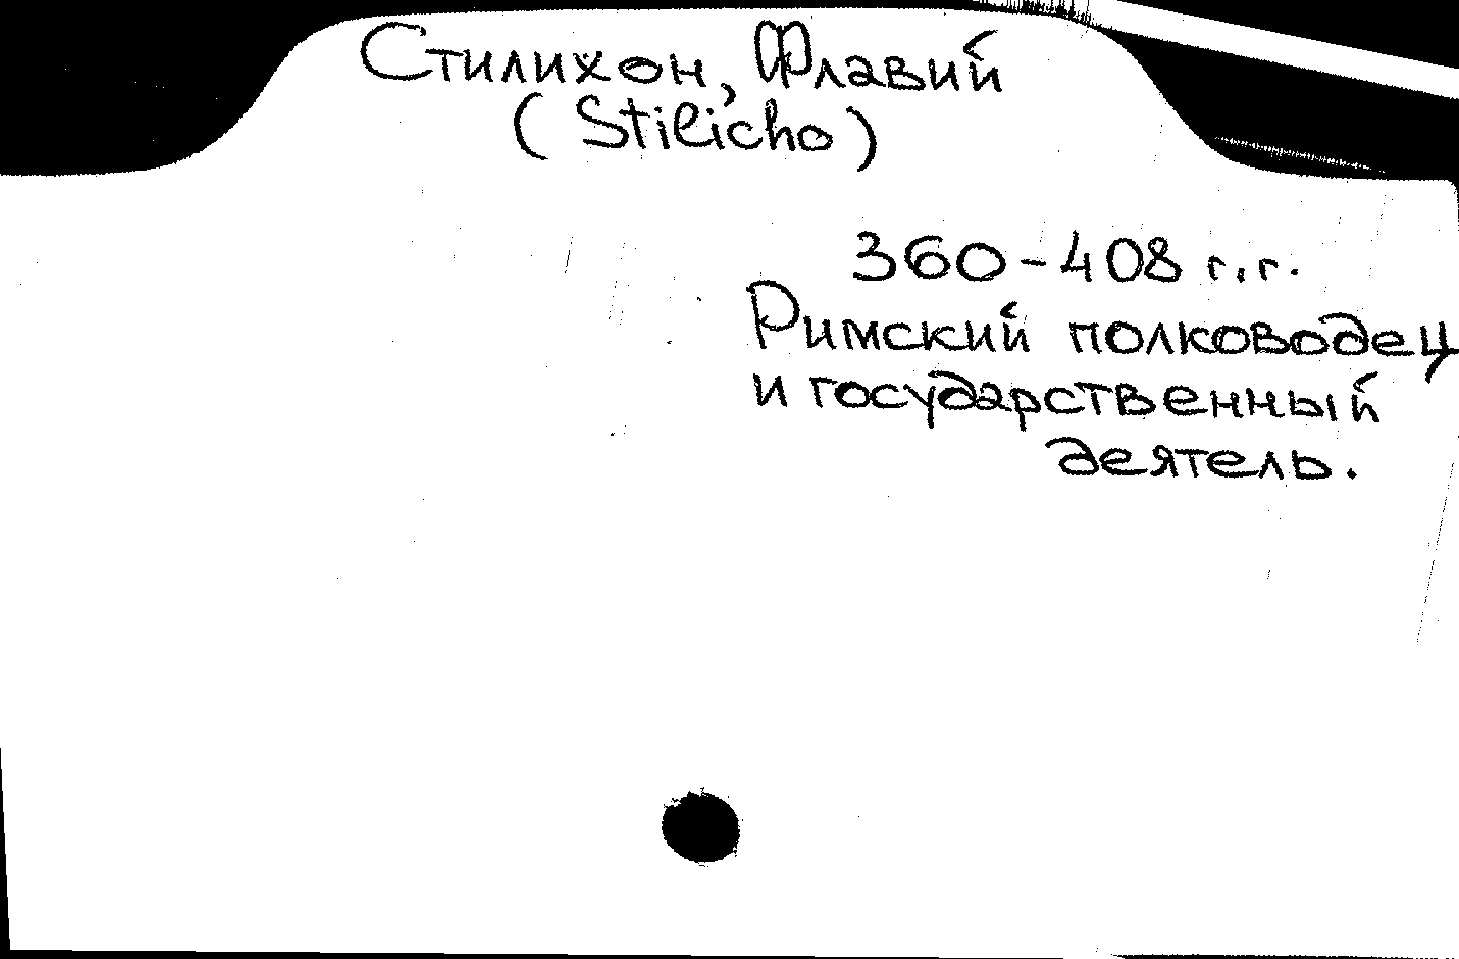 Стилихон, Флавий
(Stilicho)
360-408 г.г.
Римский полководец
и государственный
деятель.